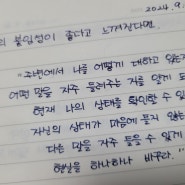 2024. 9.
의 붙임성이 좋다고 느껴진다면
"주변에서 나를 어떻게 대하고 있는지
어떤 말을 자주 들려주는 지를 알게
현재 나의 상태를 확인할 수 있
자신의 상태가 마음에 들지 않는
다른 말을 자주 들을 수 있게
행실을 하나하나 바꾸라."